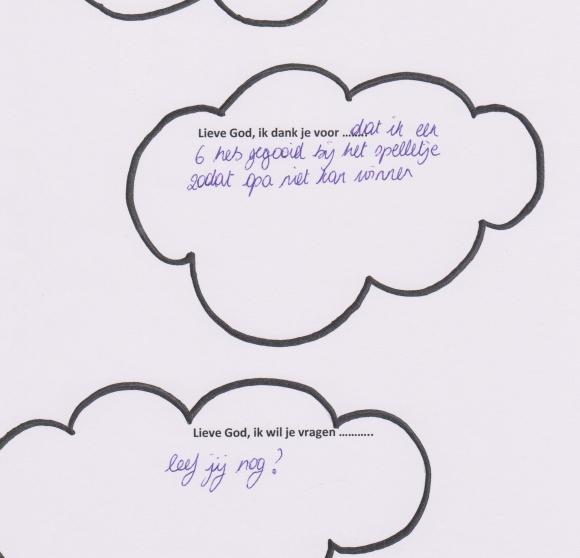 Lieve God, ik dank je voor ........dat ik een
6 heb gegooid bij het spelletje
zodat opa niet kan winnen
Lieve God, ik wil je vragen ...........
leef jij nog?